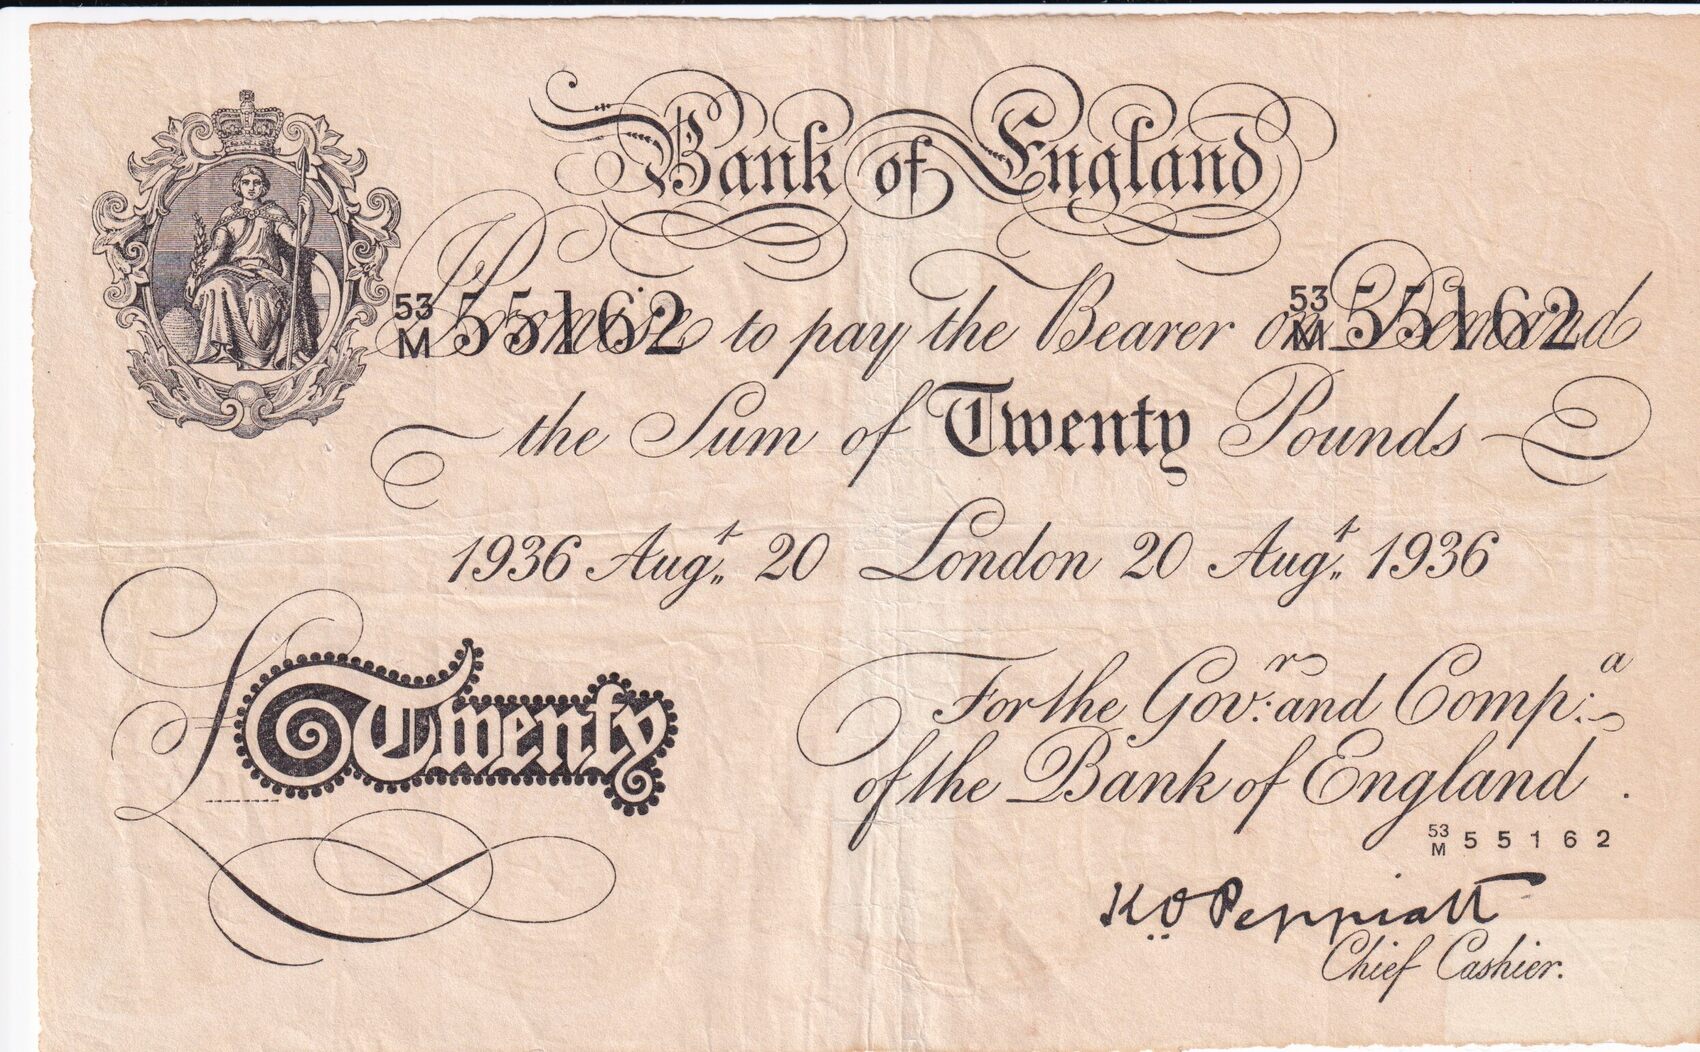 Bank of England
53/M 55162 53/M 55162
I Promise to pay the Bearer on Demand
the Sum of Twenty Pounds
1936 Augt. 20 London 20 Augt. 1936
For the Govr: and Compa:
£Twenty
of the Bank of England.
53/M 55162
K.O. Peppiatt
Chief Cashier.